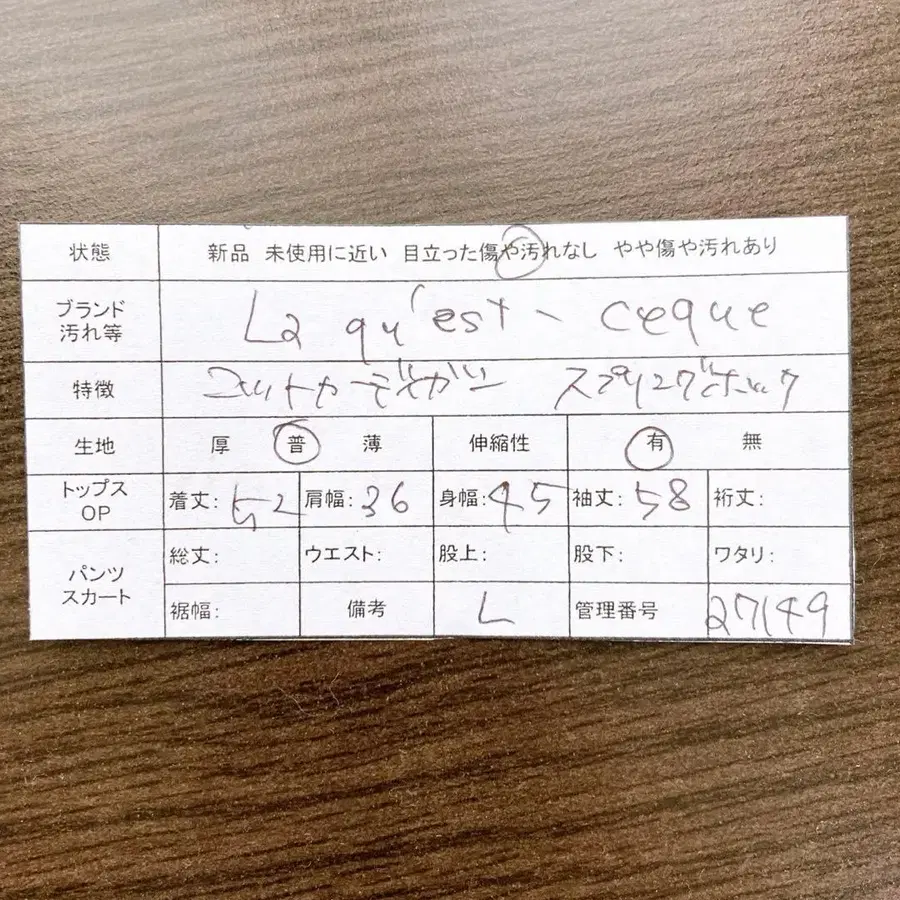 状態 新品 未使用に近い 目立った傷や汚れなし やや傷や汚れあり
ブランド
汚れ等
La qu'est - ceque
特徴 コットカーディガン スプリングホック
生地 厚 普 薄 伸縮性 有 無
トップス
OP
着丈: 52 肩幅: 36 身幅: 45 袖丈: 58 裄丈:
パンツ
スカート
総丈: ウエスト: 股上: 股下: ワタリ:
裾幅: 備考 L 管理番号 27149